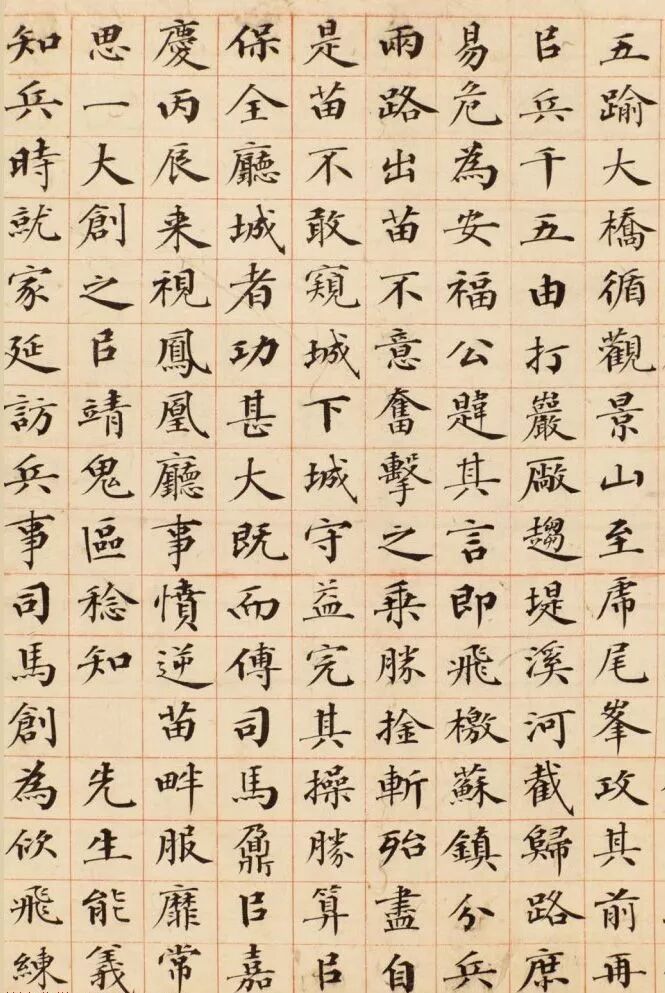 五踰大橋循觀景山至虎尾峯攻其前再
㠯兵千五由打巖廠趨堤溪河截歸路庶
易危為安福公韙其言即飛檄蘇鎮分兵
兩路出苗不意奮擊之乘勝捦斬殆盡自
是苗不敢窺城下城守益完其操勝算㠯
保全廳城者功甚大既而傅司馬鼐㠯嘉
慶丙辰来視鳳凰廳事憤逆苗畔服靡常
思一大創之㠯靖鬼區稔知 先生能義
知兵時就家延訪兵事司馬創為佽飛練